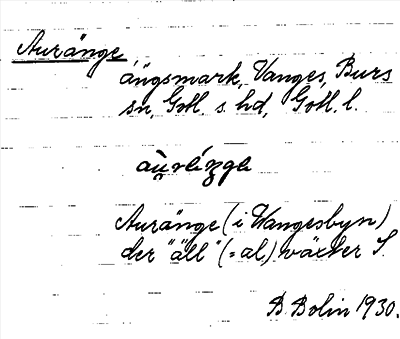 Auränge
ängsmark, Vanges, Burs
sn, Gotl. s. hd, Gotl. l.
Auränge (i Wangesbyn)
der "äll" (=al) wäxter S.
B. Bolin 1930.